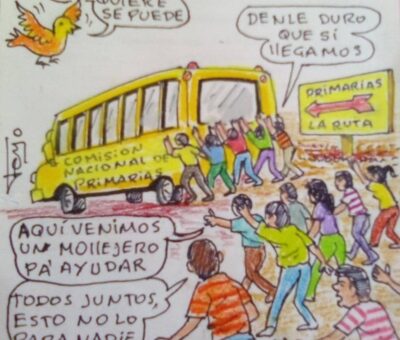 QUIERE
SE PUEDE
DENLE DURO
QUE SÍ
LLEGAMOS
PRIMARIAS
LA RUTA
COMISIÓN
NACIONAL DE
PRIMARIAS
AQUÍ VENIMOS
UN MOLLEJERO
PA' AYUDAR
TODOS JUNTOS,
ESTO NO LO
PARA NADIE